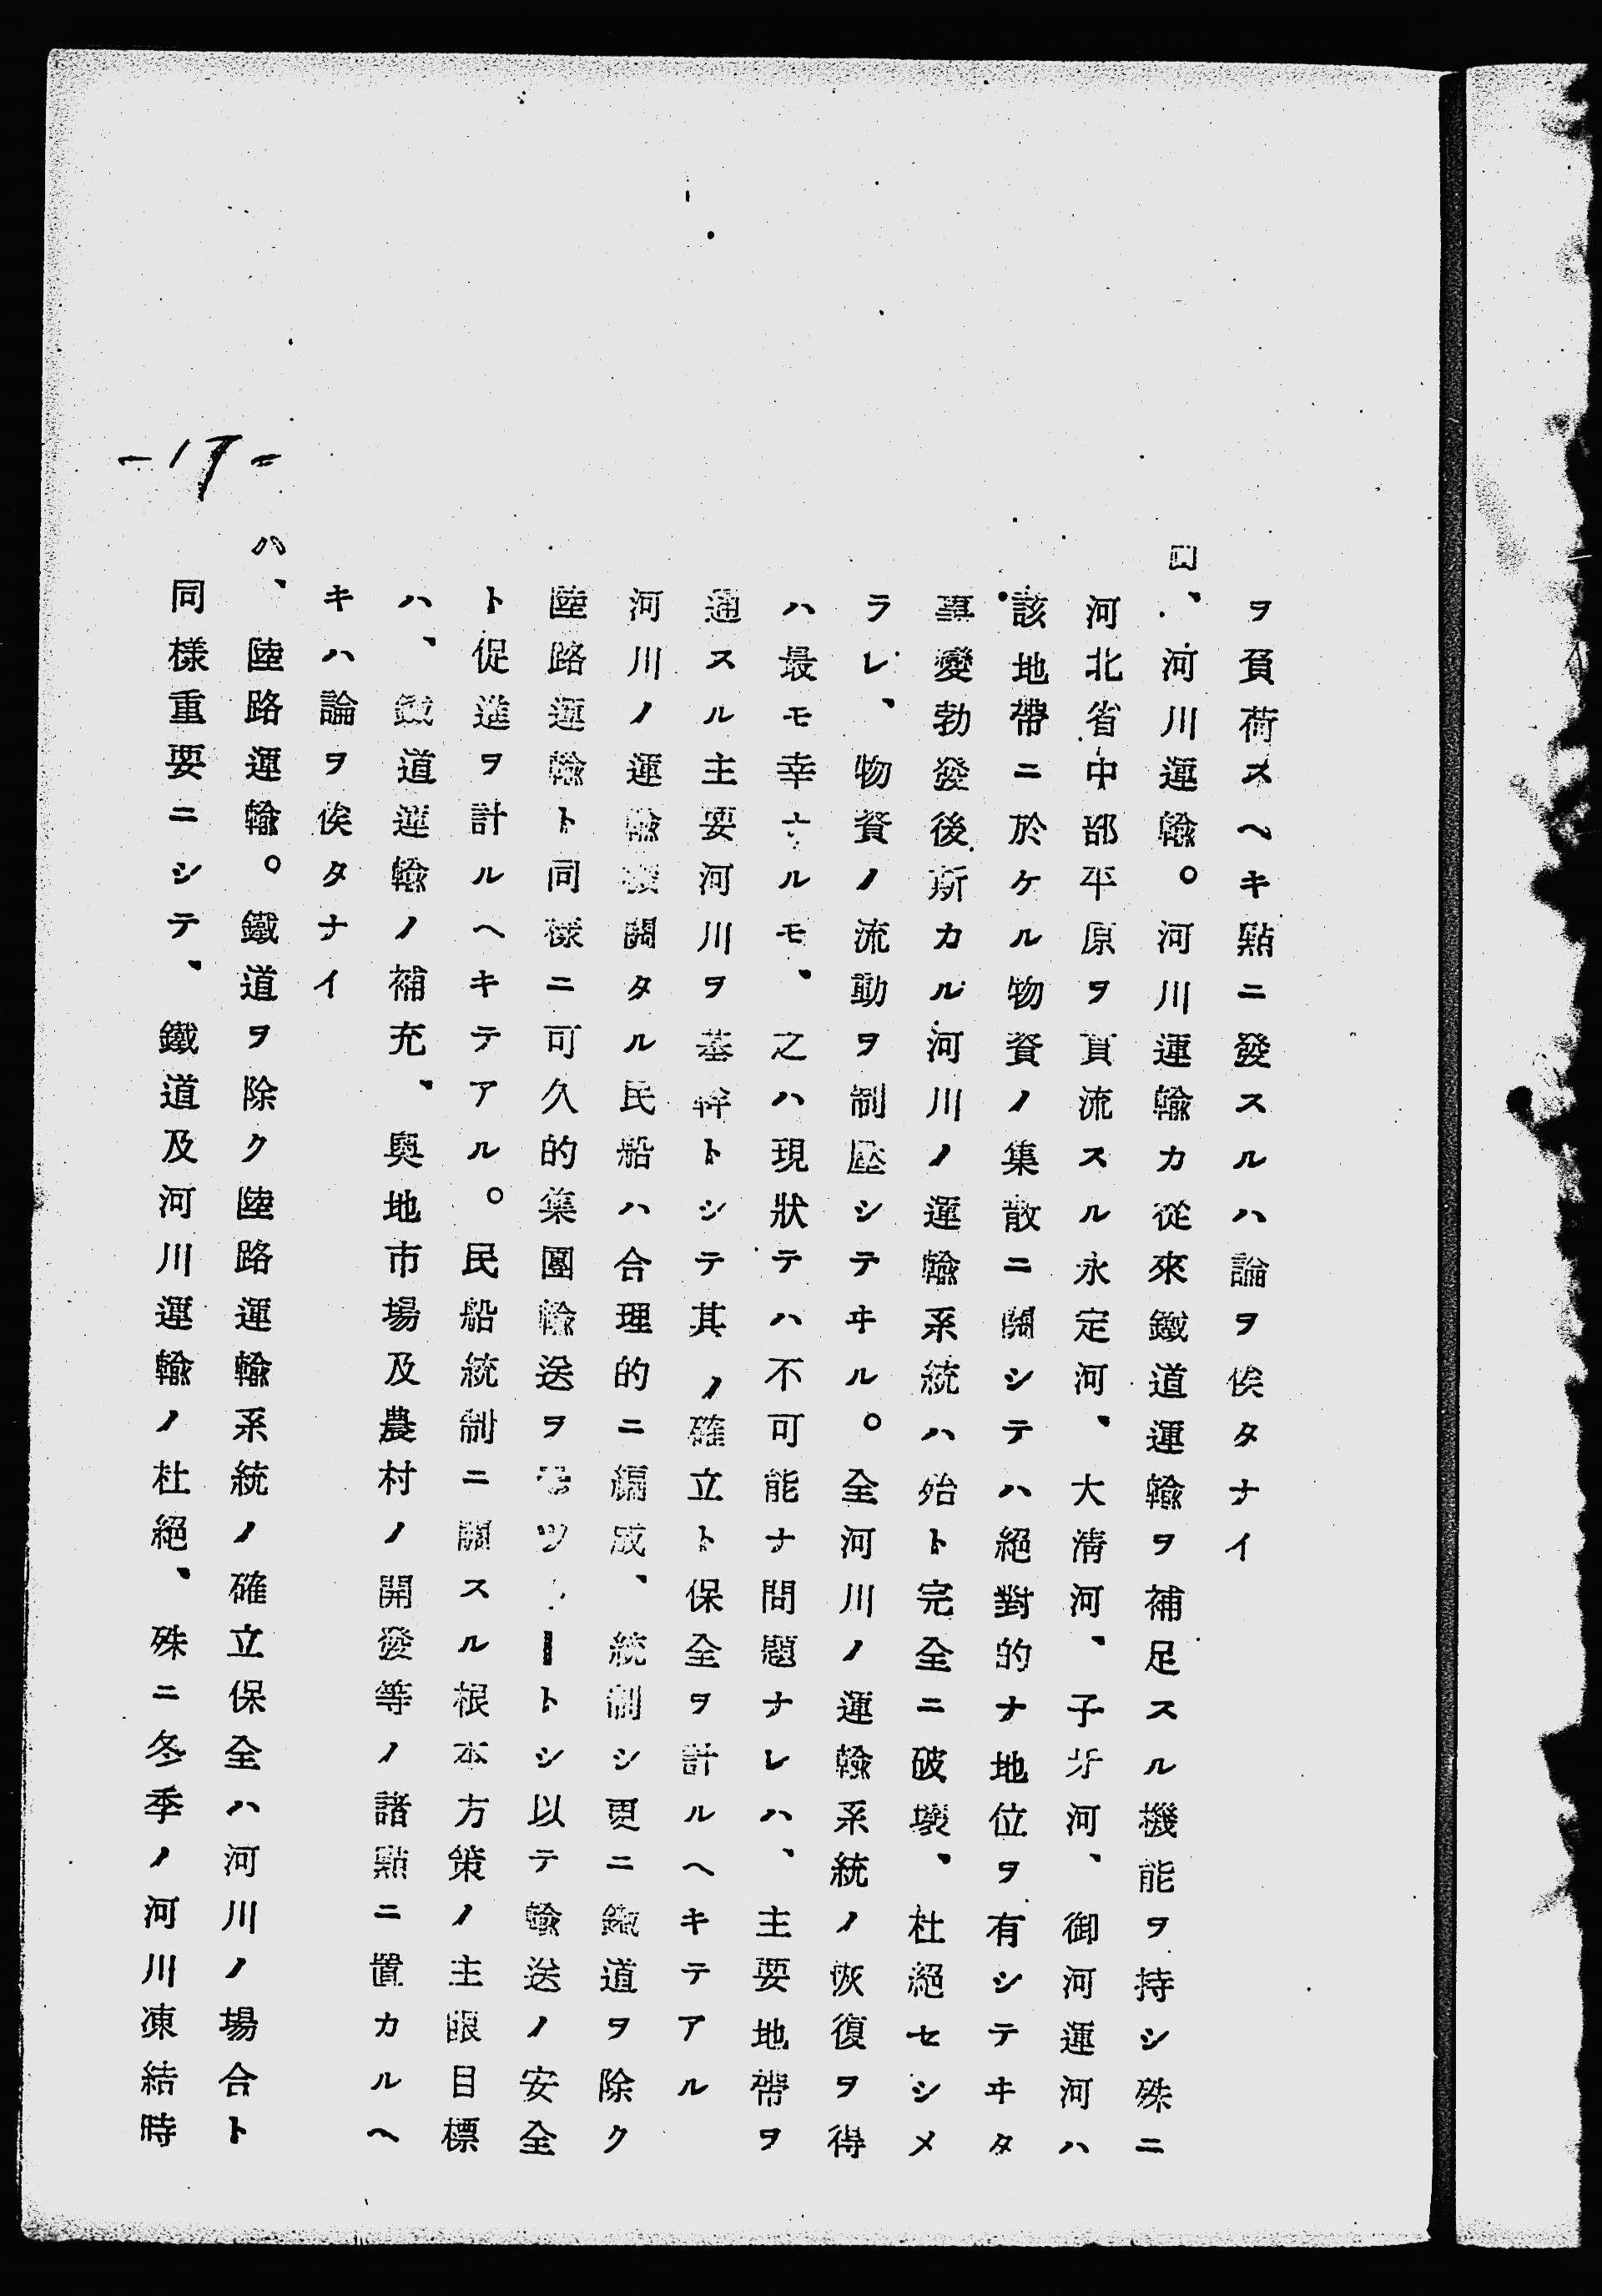 ヲ負荷スヘキ點ニ發スルハ論ヲ俟タナイ
ロ、河川運輸。河川運輸カ從來鐵道運輸ヲ補足スル機能ヲ持シ殊ニ
河北省中部平原ヲ貫流スル永定河、大淸河、子牙河、御河運河ハ
該地帶ニ於ケル物資ノ集散ニ關シテハ絕對的ナ地位ヲ有シテヰタ
事變勃發後所カル河川ノ運輸系統ハ殆ト完全ニ破壞、杜絕セシメ
ラレ、物資ノ流動ヲ制壓シテヰル。全河川ノ運輸系統ノ恢復ヲ得
ハ最モ幸ナルモ、之ハ現狀テハ不可能ナ問題ナレハ、主要地帶ヲ
通スル主要河川ヲ基幹トシテ其ノ確立ト保全ヲ計ルヘキテアル
河川ノ運輸機關タル民船ハ合理的ニ編成、統制シ更ニ鐵道ヲ除ク
陸路運輸ト同樣ニ可久的集團輸送ヲモツートシ以テ輸送ノ安全
ト促進ヲ計ルヘキテアル。民船統制ニ關スル根本方策ノ主眼目標
ハ、鐵道運輸ノ補充、奧地市場及農村ノ開發等ノ諸點ニ置カルヘ
キハ論ヲ俟タナイ
ハ、陸路運輸。鐵道ヲ除ク陸路運輸系統ノ確立保全ハ河川ノ場合ト
同樣重要ニシテ、鐵道及河川運輸ノ杜絕、殊ニ冬季ノ河川凍結時
-17-